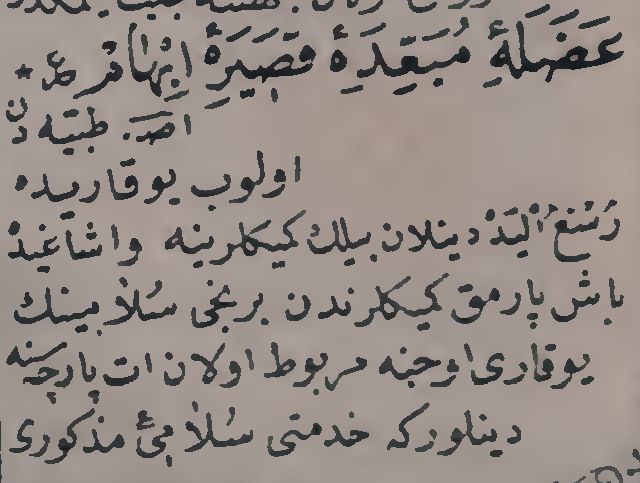 عَضَلَهٔ مُبَعِّدَهٔ قَصِیرَهٔ اِبْهَامْ ع *
اصـ. طبیه دن
اولوب یوقاریده
رُسْغُ الْیَدْ دینلان بیلك كمیكلرینه واشاغیدْ
باش پارمق كمیكلرندن برنجی سُلاٰمینك
یوقاری اوجنه مربوط اولان ات پارچه‌سنه
دینلوركه خدمتی سُلاٰمیٔ مذكوری